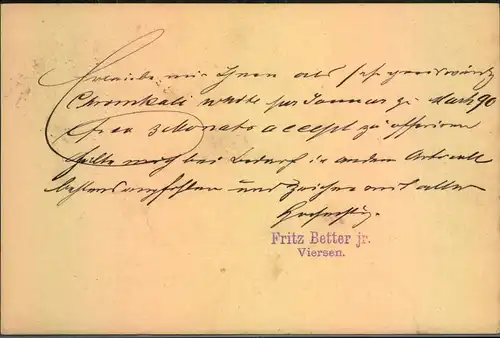 Erlaube mir Ihnen als sehr preiswürdig
Chromkali per Januar Mark 90
3 Monats accept zu offeriren
mich bei Bedarf in andern Artikeln
bestens empfohlen und zeichne mit aller
Hochachtung.
Fritz Better jr.
Viersen.